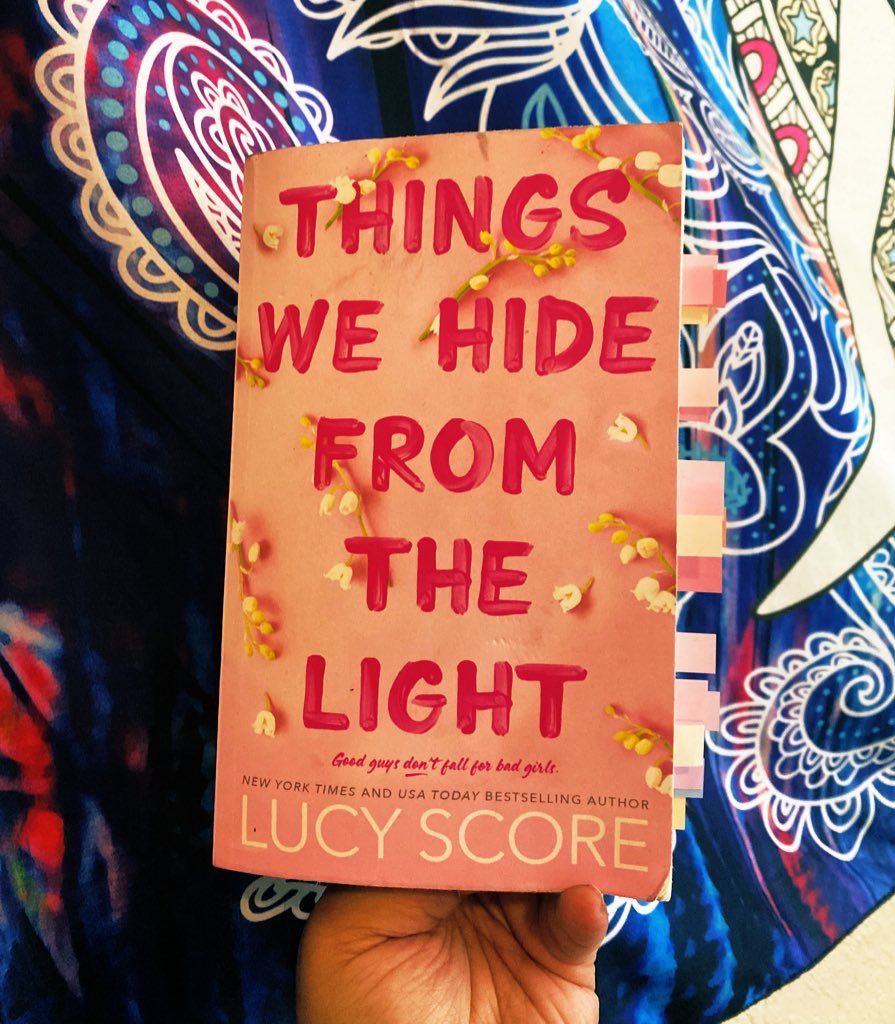 THINGS
WE HIDE
FROM
THE
LIGHT
Good guys don't fall for bad girls.
NEW YORK TIMES AND USA TODAY BESTSELLING AUTHOR
LUCY SCORE